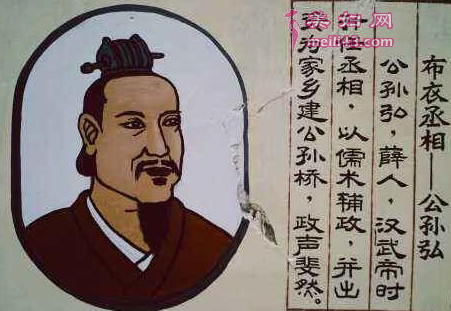 布衣丞相——公孙弘
公孙弘，薛人，汉武帝时
任丞相，以儒术辅政，并出
资为家乡建公孙桥，政声斐然。
美拍网
meili91.com